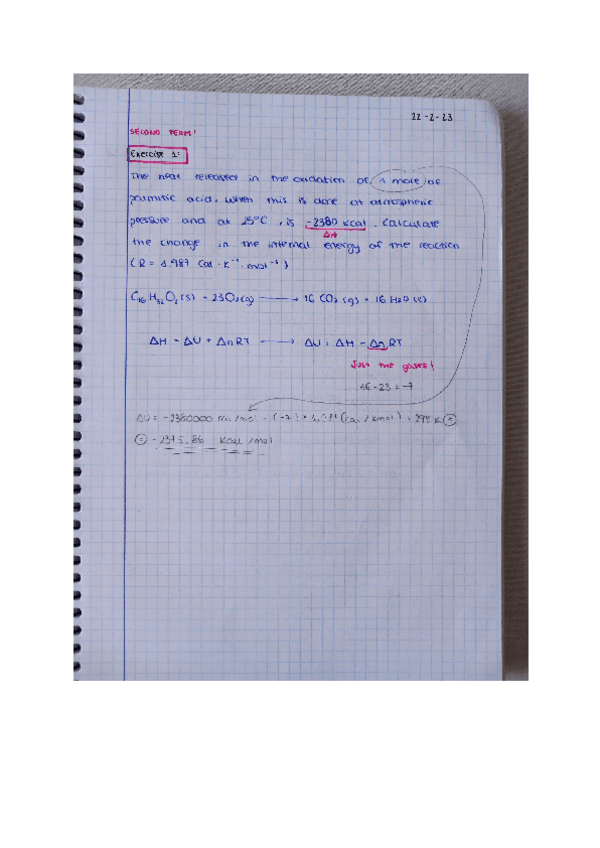 22-2-23
SECOND TERM!
Exercise 1:
The heat released in the oxidation of 1 mole of
palmitic acid, when this is done at atmospheric
pressure and at 25°C, is -2380 kcal. Calculate
ΔH
the change in the internal energy of the reaction
(R = 1.987 cal · K⁻¹ · mol⁻¹)
C₁₆H₃₂O₂(s) + 23O₂(g) ⟶ 16 CO₂(g) + 16 H₂O(l)
ΔH = ΔU + ΔnRT ⟶ ΔU = ΔH - ΔnRT
Just the gases!
16-23 = -7
ΔU = -2380000 cal/mol - (-7) · 1,987 (cal/kmol) · 298 K =
= -2375.86 kcal/mol